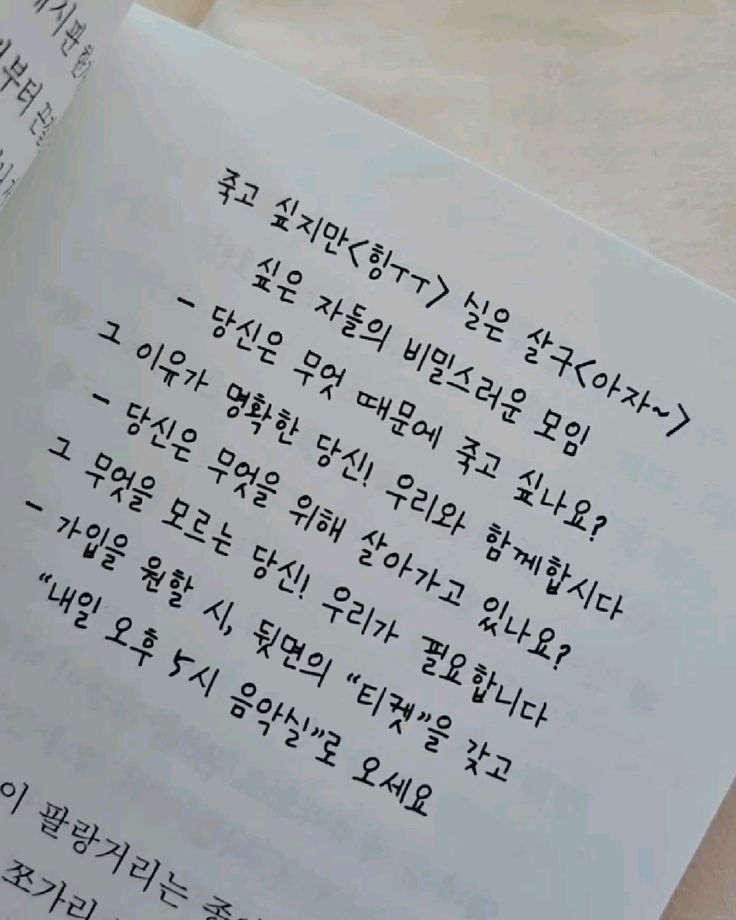 게시판
부터
죽고 싶지만<힝ㅜㅜ> 실은 살구<아자~>
싶은 자들의 비밀스러운 모임
- 당신은 무엇 때문에 죽고 싶나요?
그 이유가 명확한 당신! 우리와 함께합시다
- 당신은 무엇을 위해 살아가고 있나요?
그 무엇을 모르는 당신! 우리가 필요합니다
- 가입을 원할 시, 뒷면의 “티켓”을 갖고
“내일 오후 5시 음악실”로 오세요
이 팔랑거리는
쪼가리